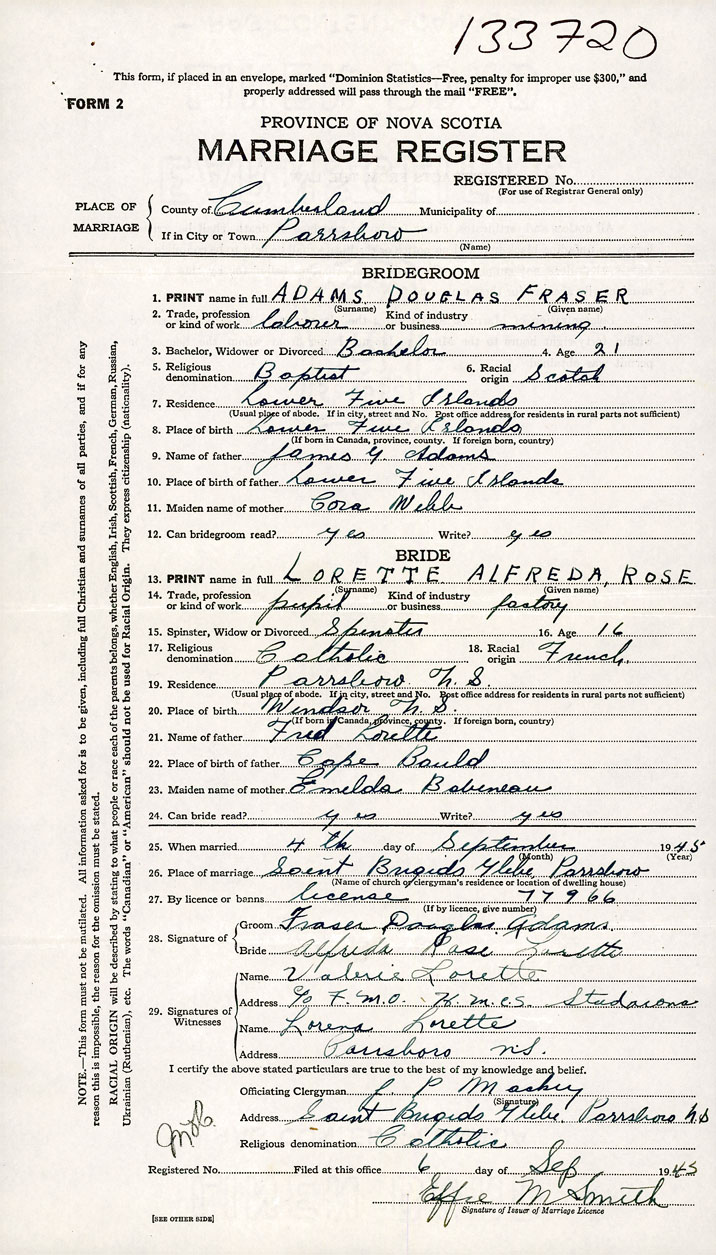 133720
This form, if placed in an envelope, marked "Dominion Statistics—Free, penalty for improper use $300," and
properly addressed will pass through the mail "FREE".
FORM 2
PROVINCE OF NOVA SCOTIA
MARRIAGE REGISTER
REGISTERED No.
(For use of Registrar General only)
PLACE OF MARRIAGE
County of Cumberland Municipality of
If in City or Town Parrsboro
(Name)
BRIDEGROOM
1. PRINT name in full ADAMS DOUGLAS FRASER
(Surname) (Given name)
2. Trade, profession or kind of work laborer Kind of industry or business mining
3. Bachelor, Widower or Divorced Bachelor 4. Age 21
5. Religious denomination Baptist 6. Racial origin Scotch
7. Residence Lower Five Islands
(Usual place of abode. If in city, street and No. Post office address for residents in rural parts not sufficient)
8. Place of birth Lower Five Islands
(If born in Canada, province, county. If foreign born, country)
9. Name of father James Y. Adams
10. Place of birth of father Lower Five Islands
11. Maiden name of mother Cora Webb
12. Can bridegroom read? yes Write? yes
BRIDE
13. PRINT name in full LORETTE ALFREDA, ROSE
(Surname) (Given name)
14. Trade, profession or kind of work pupil Kind of industry or business factory
15. Spinster, Widow or Divorced Spinster 16. Age 16
17. Religious denomination Catholic 18. Racial origin French
19. Residence Parrsboro N.S.
(Usual place of abode. If in city, street and No. Post office address for residents in rural parts not sufficient)
20. Place of birth Windsor N.S.
(If born in Canada, province, county. If foreign born, country)
21. Name of father Fred Lorette
22. Place of birth of father Cape Bauld
23. Maiden name of mother Emelda Babineau
24. Can bride read? yes Write? yes
25. When married 4th day of September 1945
(Month) (Year)
26. Place of marriage Saint Brigids Glebe, Parrsboro
(Name of church or clergyman's residence or location of dwelling house)
27. By licence or banns license 77966
(If by licence, give number)
28. Signature of
Groom Fraser Douglas Adams
Bride Alfreda Rose Lorette
29. Signatures of Witnesses
Name Valerie Lorette
Address c/o F.M.O. H.M.C.S. Stadacona
Name Lorena Lorette
Address Parrsboro N.S.
I certify the above stated particulars are true to the best of my knowledge and belief.
Officiating Clergyman J. P. Mackey
(Signature)
Address Saint Brigids Glebe, Parrsboro N.S
Religious denomination Catholic
Registered No. Filed at this office 6 day of Sep 1945
Effie M Smith
Signature of Issuer of Marriage Licence
[SEE OTHER SIDE]
NOTE.—This form must not be mutilated. All information asked for is to be given, including full Christian and surnames of all parties, and if for any
reason this is impossible, the reason for the omission must be stated.
RACIAL ORIGIN will be described by stating to what people or race each of the parents belongs, whether English, Irish, Scottish, French, German, Russian,
Ukrainian (Ruthenian), etc. The words "Canadian" or "American" should not be used for Racial Origin. They express citizenship (nationality).